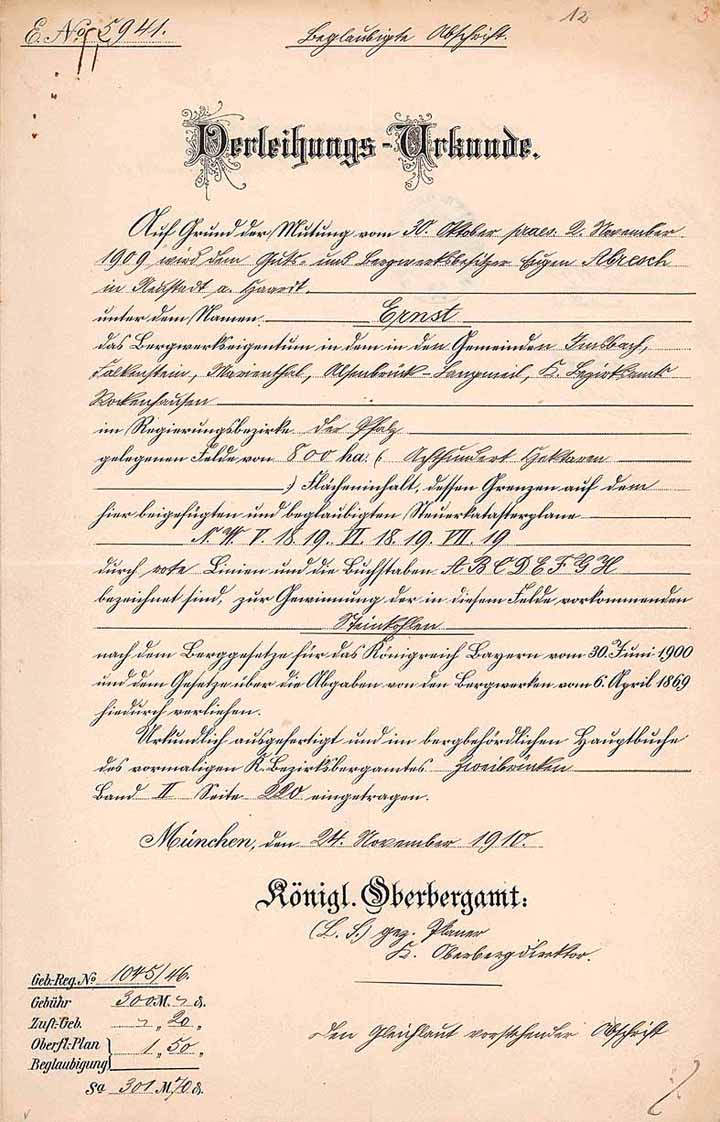 E. No 5941.
Beglaubigte Abschrift.
12
3
Verleihungs-Urkunde.
Auf Grund der Mutung vom 30. Oktober praes. 2. November
1909 wird dem Guts- und Bergwerksbesitzer Eugen Abresch
in Neustadt a. Haardt.
unter dem Namen Ernst
das Bergwerkseigentum in dem in den Gemeinden Imsbach,
Falkenstein, Marienthal, Alsenbrück-Langmeil, K. Bezirksamts
Rockenhausen
im Regierungsbezirke der Pfalz
gelegenen Felde von 800 ha. ( Achthundert Hektaren
) Flächeninhalt, dessen Grenzen auf dem
hier beigefügten und beglaubigten Steuerkatasterplane
N. W. V. 18. 19. VI. 18. 19. VII. 19
durch rote Linien und die Buchstaben A B C D E F G H
bezeichnet sind, zur Gewinnung der in diesem Felde vorkommenden
Steinkohlen
nach dem Berggesetze für das Königreich Bayern vom 30. Juni 1900
und dem Gesetze über die Abgaben von den Bergwerken vom 6. April 1869
hiedurch verliehen.
Urkundlich ausgefertigt und im bergbehördlichen Hauptbuche
des vormaligen K. Bezirksbergamtes Zweibrücken
Band II Seite 220 eingetragen.
München, den 24. November 1910.
Königl. Oberbergamt:
(L. S.) gez. Planer
K. Oberbergdirektor.
Geb.-Reg. No 1045/46.
Gebühr 300 M. " ₰.
Zust.-Geb. " „ 20 „
Oberfl.-Plan
Beglaubigung } 1 „ 50 „
Sa 301 M. 70 ₰.
Den Gleichlaut vorstehender Abschrift